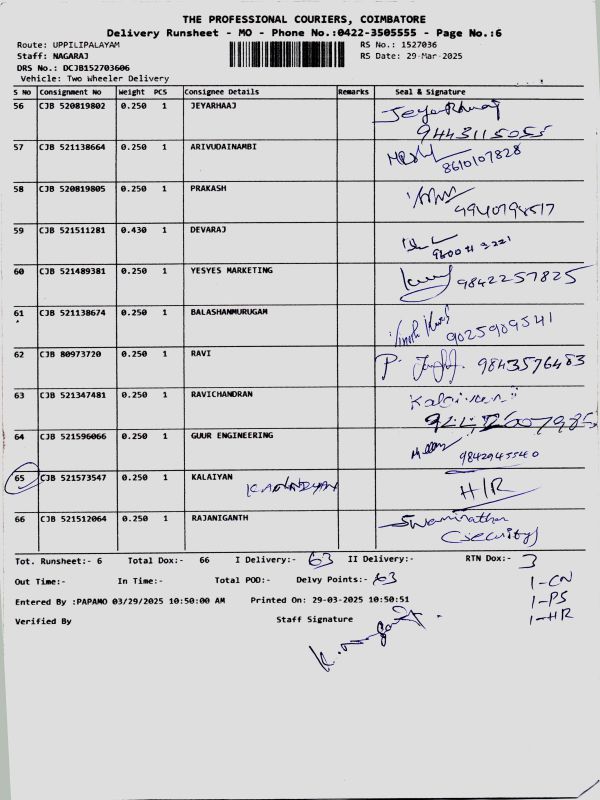 THE PROFESSIONAL COURIERS, COIMBATORE
Delivery Runsheet - MO - Phone No.:0422-3505555 - Page No.:6
Route: UPPILIPALAYAM RS No.: 1527036
Staff: NAGARAJ RS Date: 29-Mar-2025
DRS No.: DCJB152703606
Vehicle: Two Wheeler Delivery
S No Consignment No Weight PCS Consignee Details Remarks Seal & Signature
56 CJB 520819802 0.250 1 JEYARHAAJ Jeyarhaaj
9443115055
57 CJB 521138664 0.250 1 ARIVUDAINAMBI
8610107828
58 CJB 520819805 0.250 1 PRAKASH
9940798517
59 CJB 521511281 0.430 1 DEVARAJ
60 CJB 521489381 0.250 1 YESYES MARKETING 9842257825
61 CJB 521138674 0.250 1 BALASHANMURUGAM
9025909541
62 CJB 80973720 0.250 1 RAVI P. 9843576483
63 CJB 521347481 0.250 1 RAVICHANDRAN
64 CJB 521596066 0.250 1 GUUR ENGINEERING
9842945540
65 CJB 521573547 0.250 1 KALAIYAN H/R
66 CJB 521512064 0.250 1 RAJANIGANTH Swaminathan
(Security)
Tot. Runsheet:- 6 Total Dox:- 66 I Delivery:- 63 II Delivery:- RTN Dox:- 3
Out Time:- In Time:- Total POD:- Delvy Points:- 63 1-CN
Entered By :PAPAMO 03/29/2025 10:50:00 AM Printed On: 29-03-2025 10:50:51 1-PS
Verified By Staff Signature 1-HR